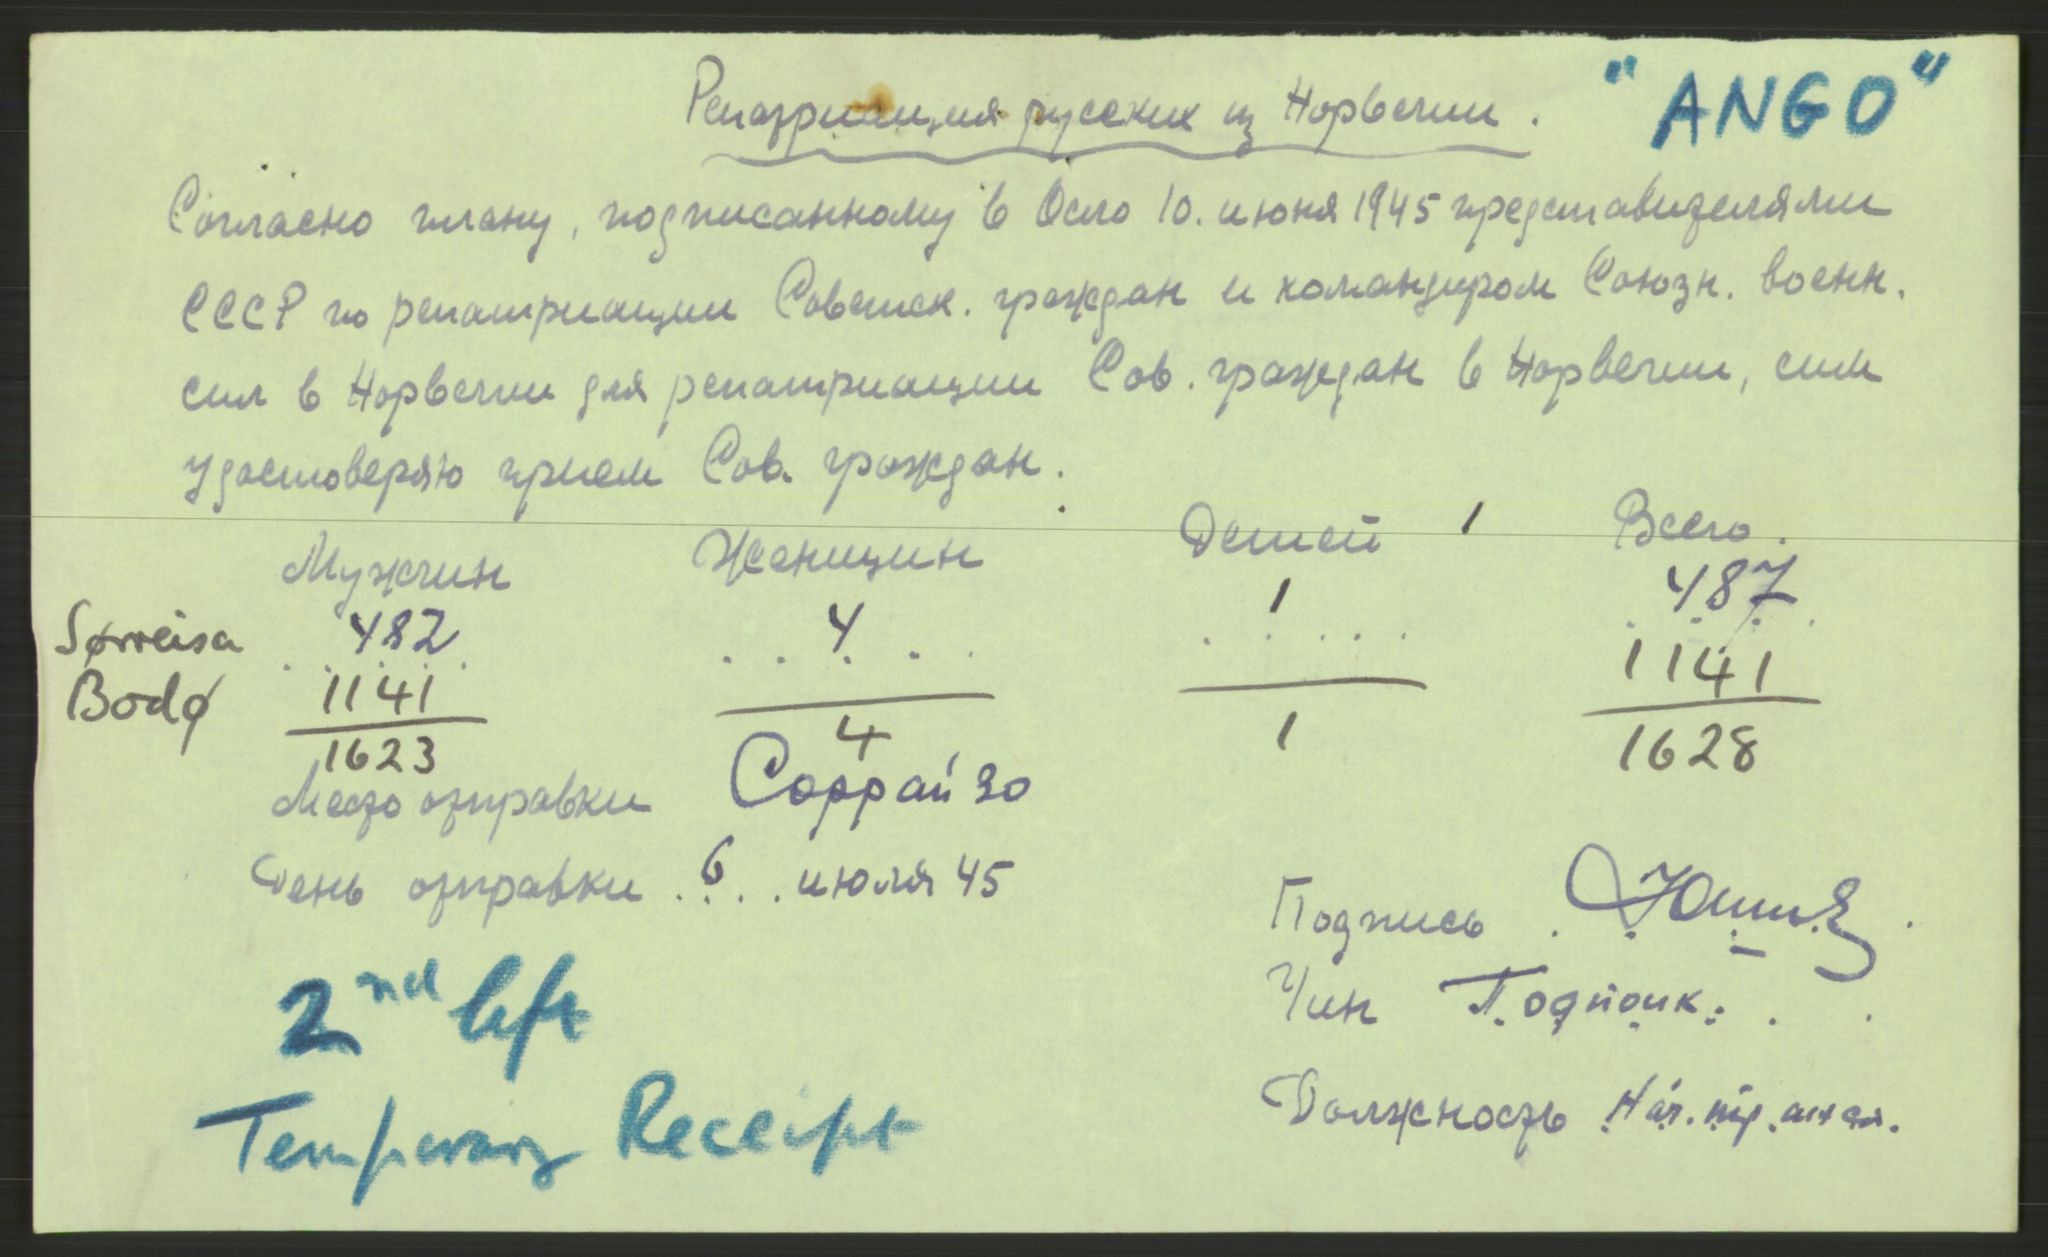 Репатриация русских из Норвегии. "ANGO"
Согласно плану, подписанному в Осло 10. июня 1945 представителями
СССР по репатриации Советск. граждан и командиром Союзн. военн.
сил в Норвегии для репатриации Сов. граждан в Норвегии, сим
удостоверяю прием Сов. граждан.
Мужчин Женщин Детей 1 Всего.
Sørreisa 482 4 1 487
Bodø 1141 1141
1623 4 1 1628
Место отправки Соррайзо
День отправки . 6 . . июля 45
Подпись
Чин Подполк.
Должность Нач.
2nd left
Temporary Receipt